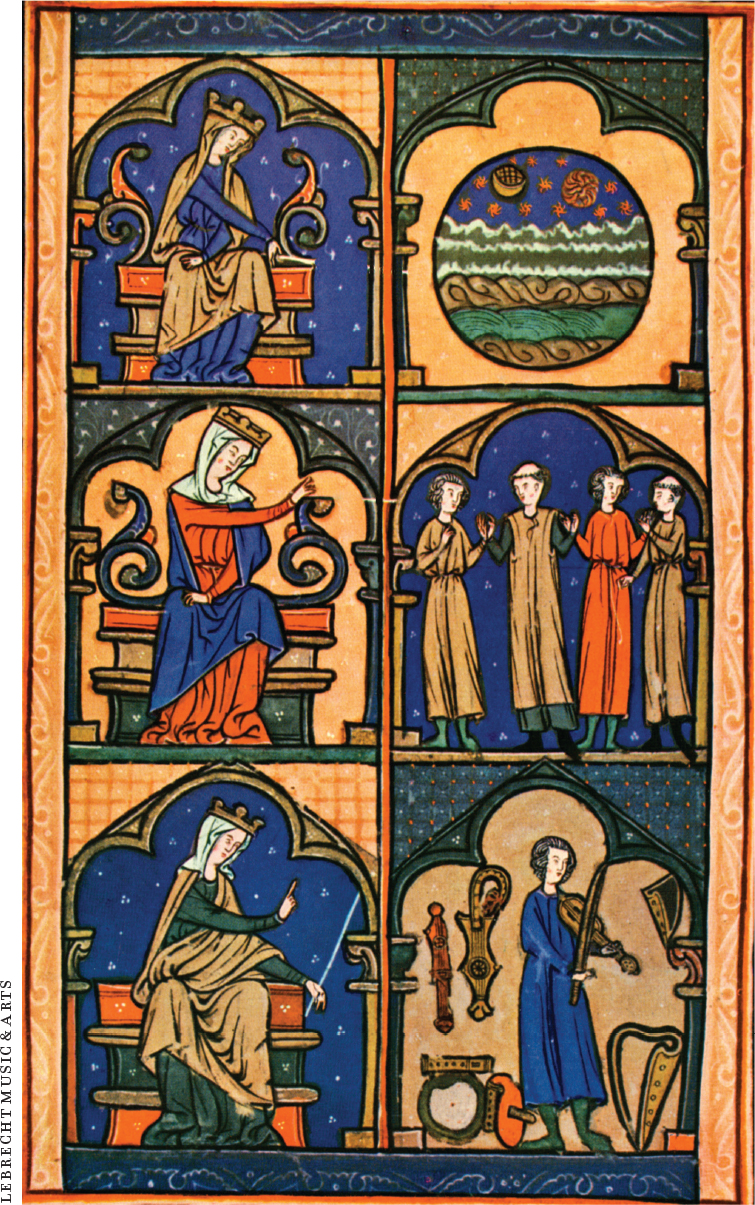 LEBRECHT MUSIC & ARTS